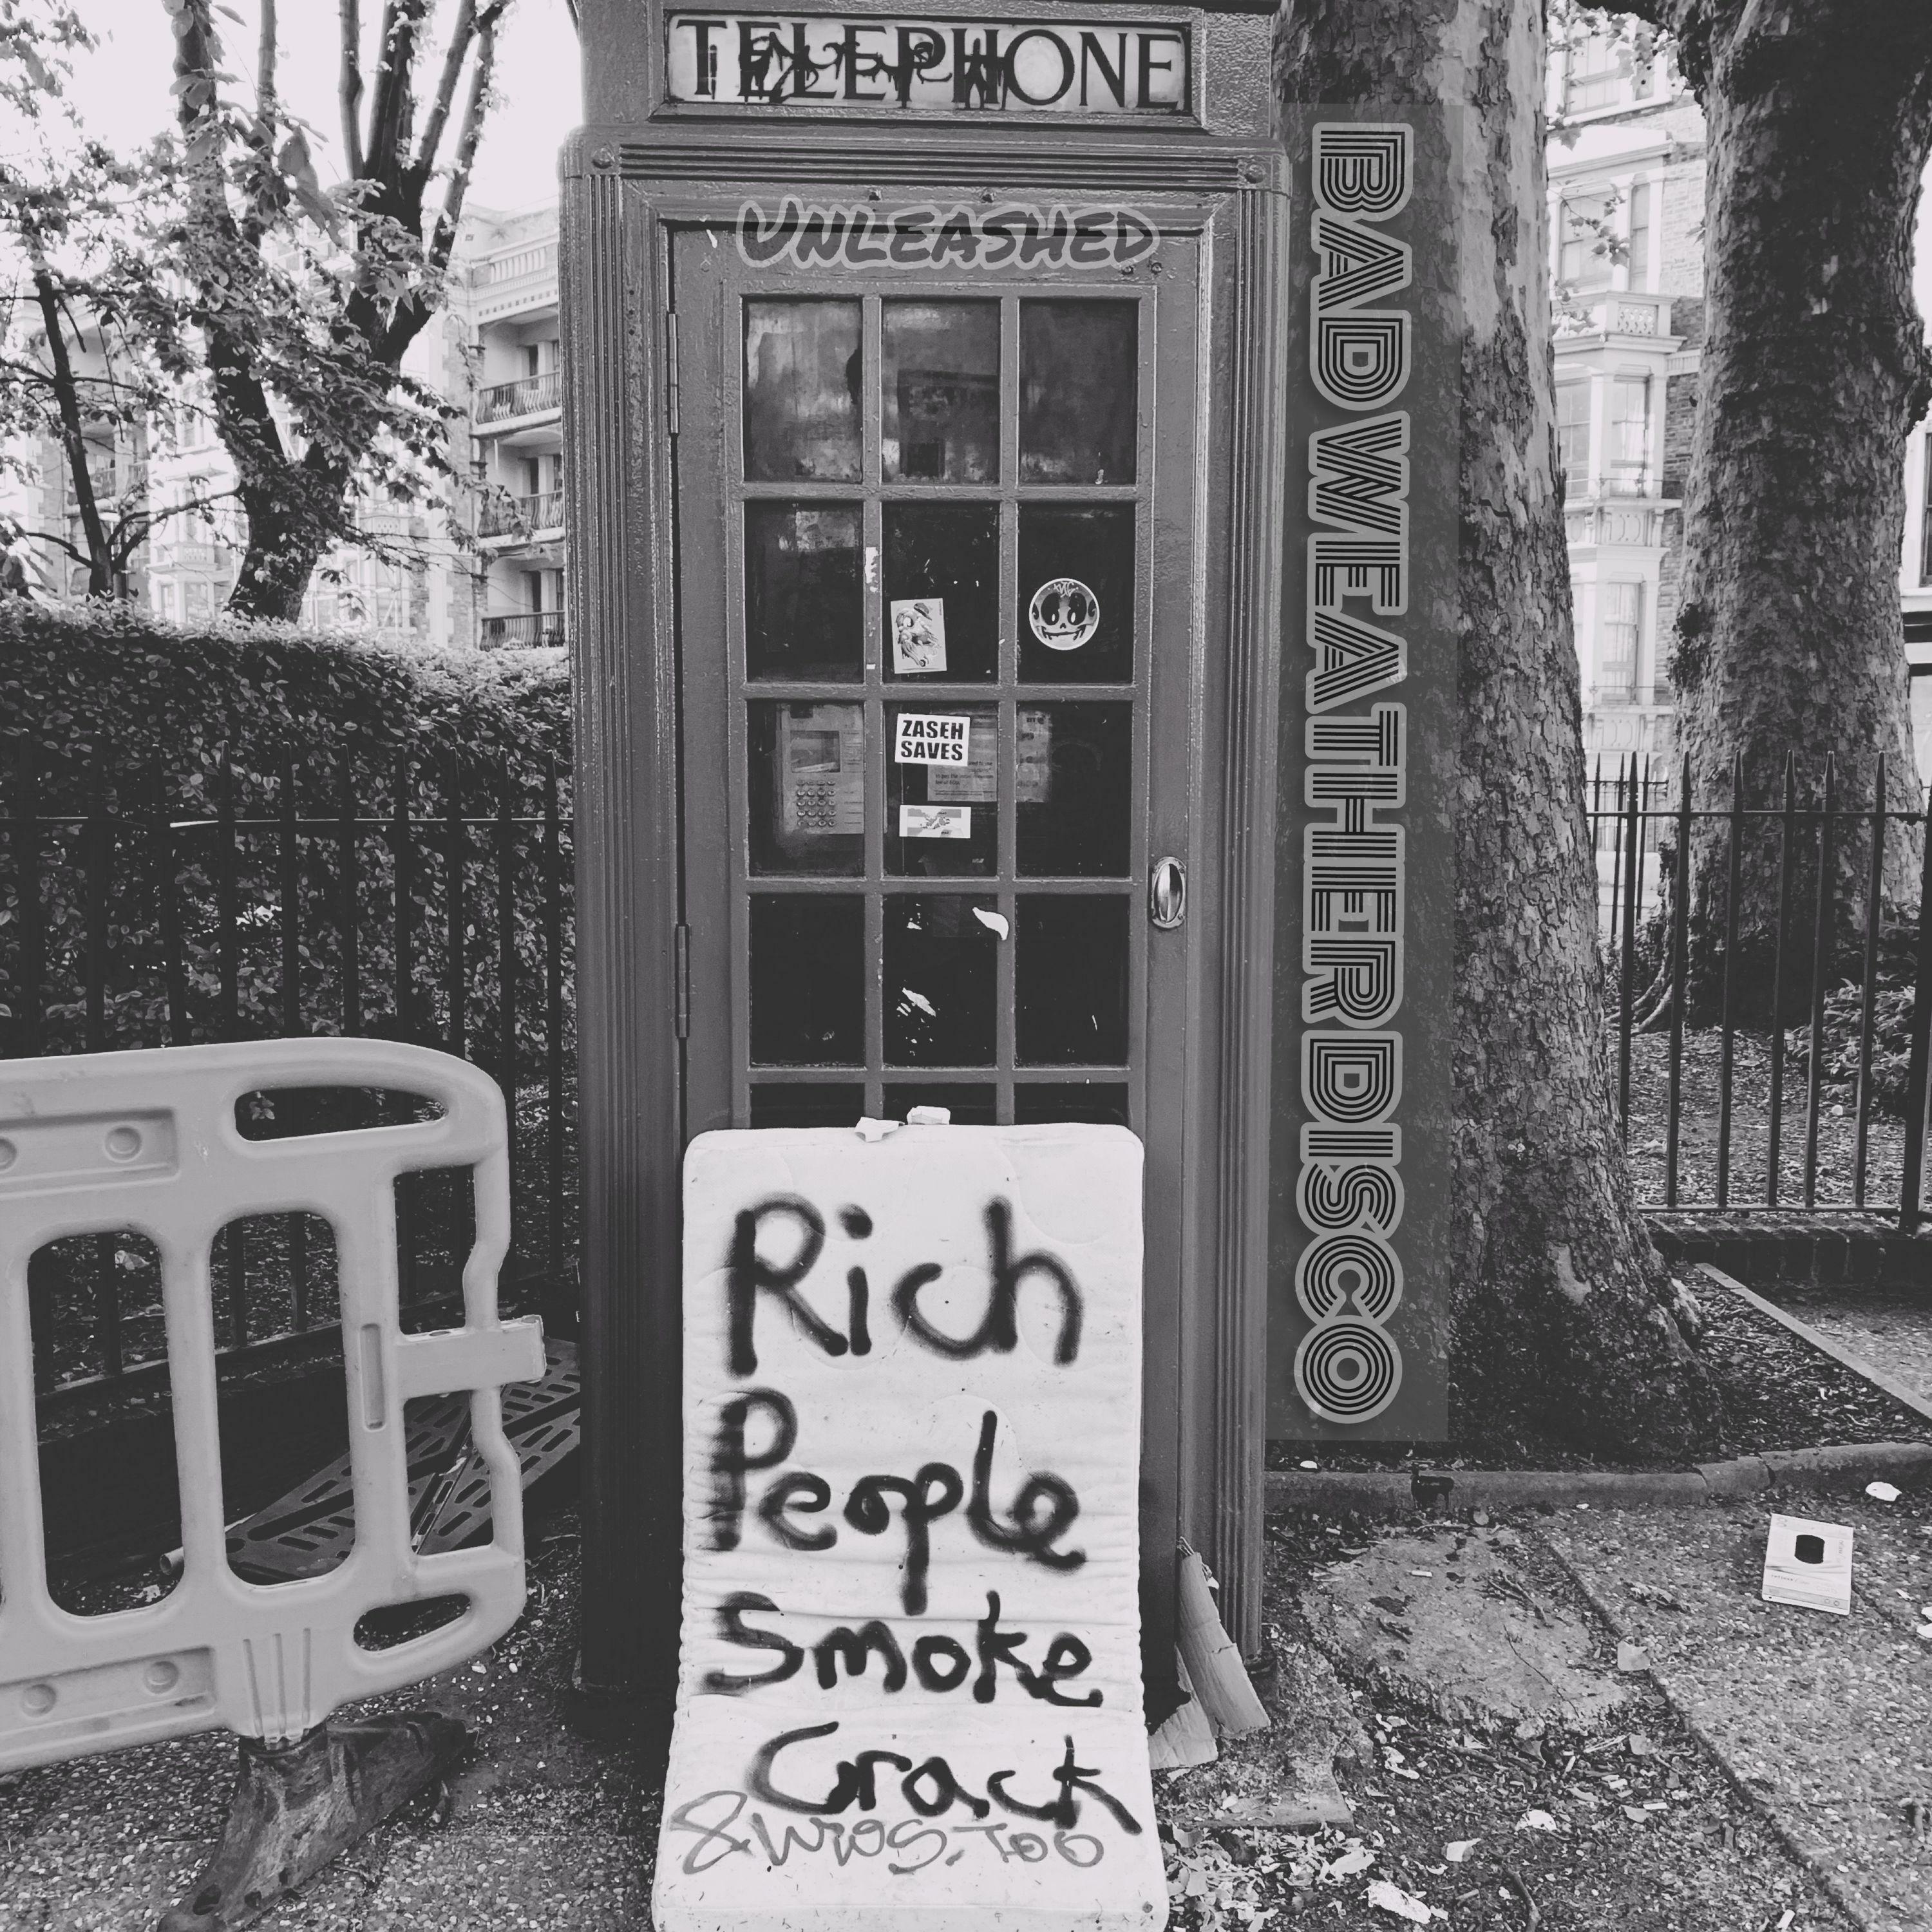 TELEPHONE
UNLEASHED
BAD WEATHER DISCO
ZASEH
SAVES
Rich
People
Smoke
Crack